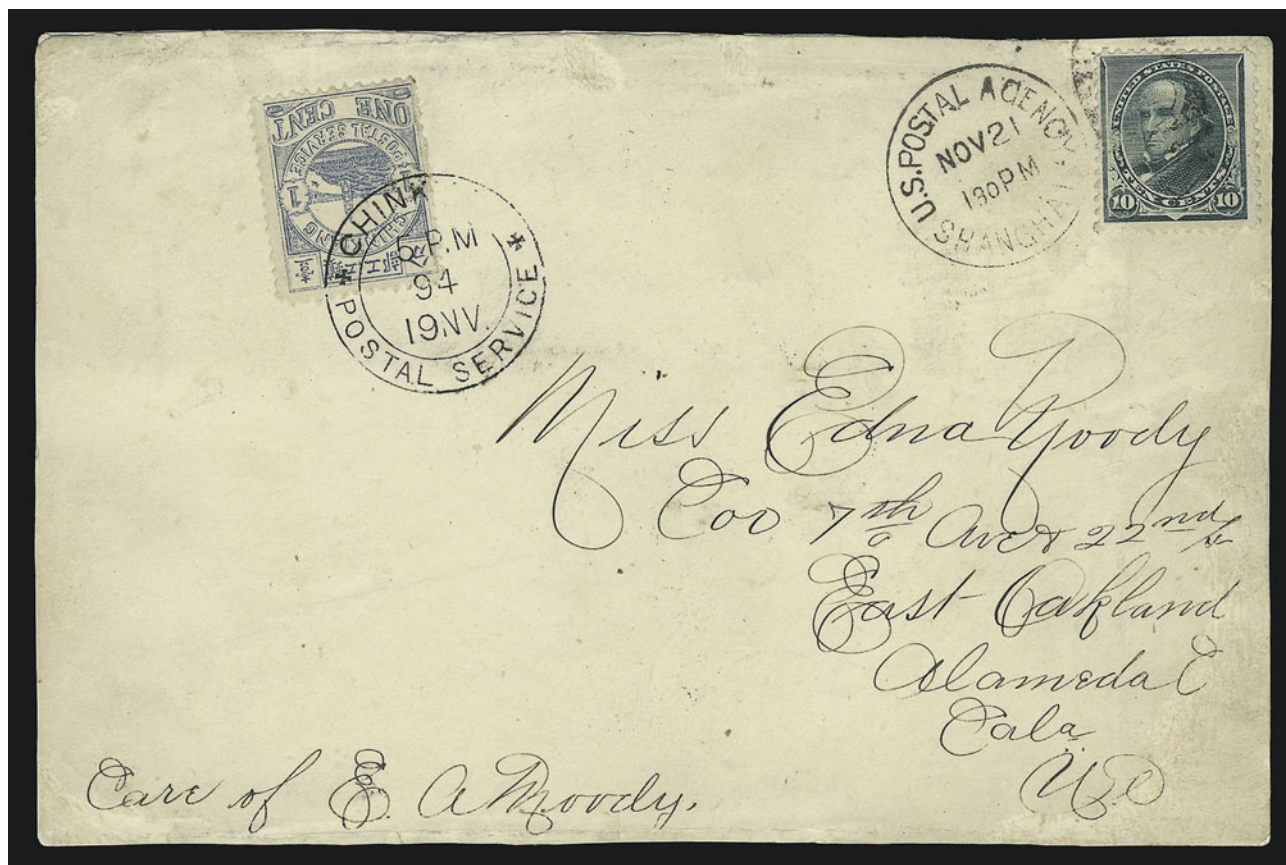 ONE CENT
POSTAL SERVICE
1
工部
CHINK
5 P.M
94
19NV.
POSTAL SERVICE
U.S. POSTAL AGENCY
NOV 21
130 PM
SHANGHAI
UNITED STATES POSTAGE
10 TEN CENTS 10
Miss Edna Moody
Cor 7th Ave & 22nd St
East Oakland
Alameda C
Cala
U.S
Care of E. A Moody.